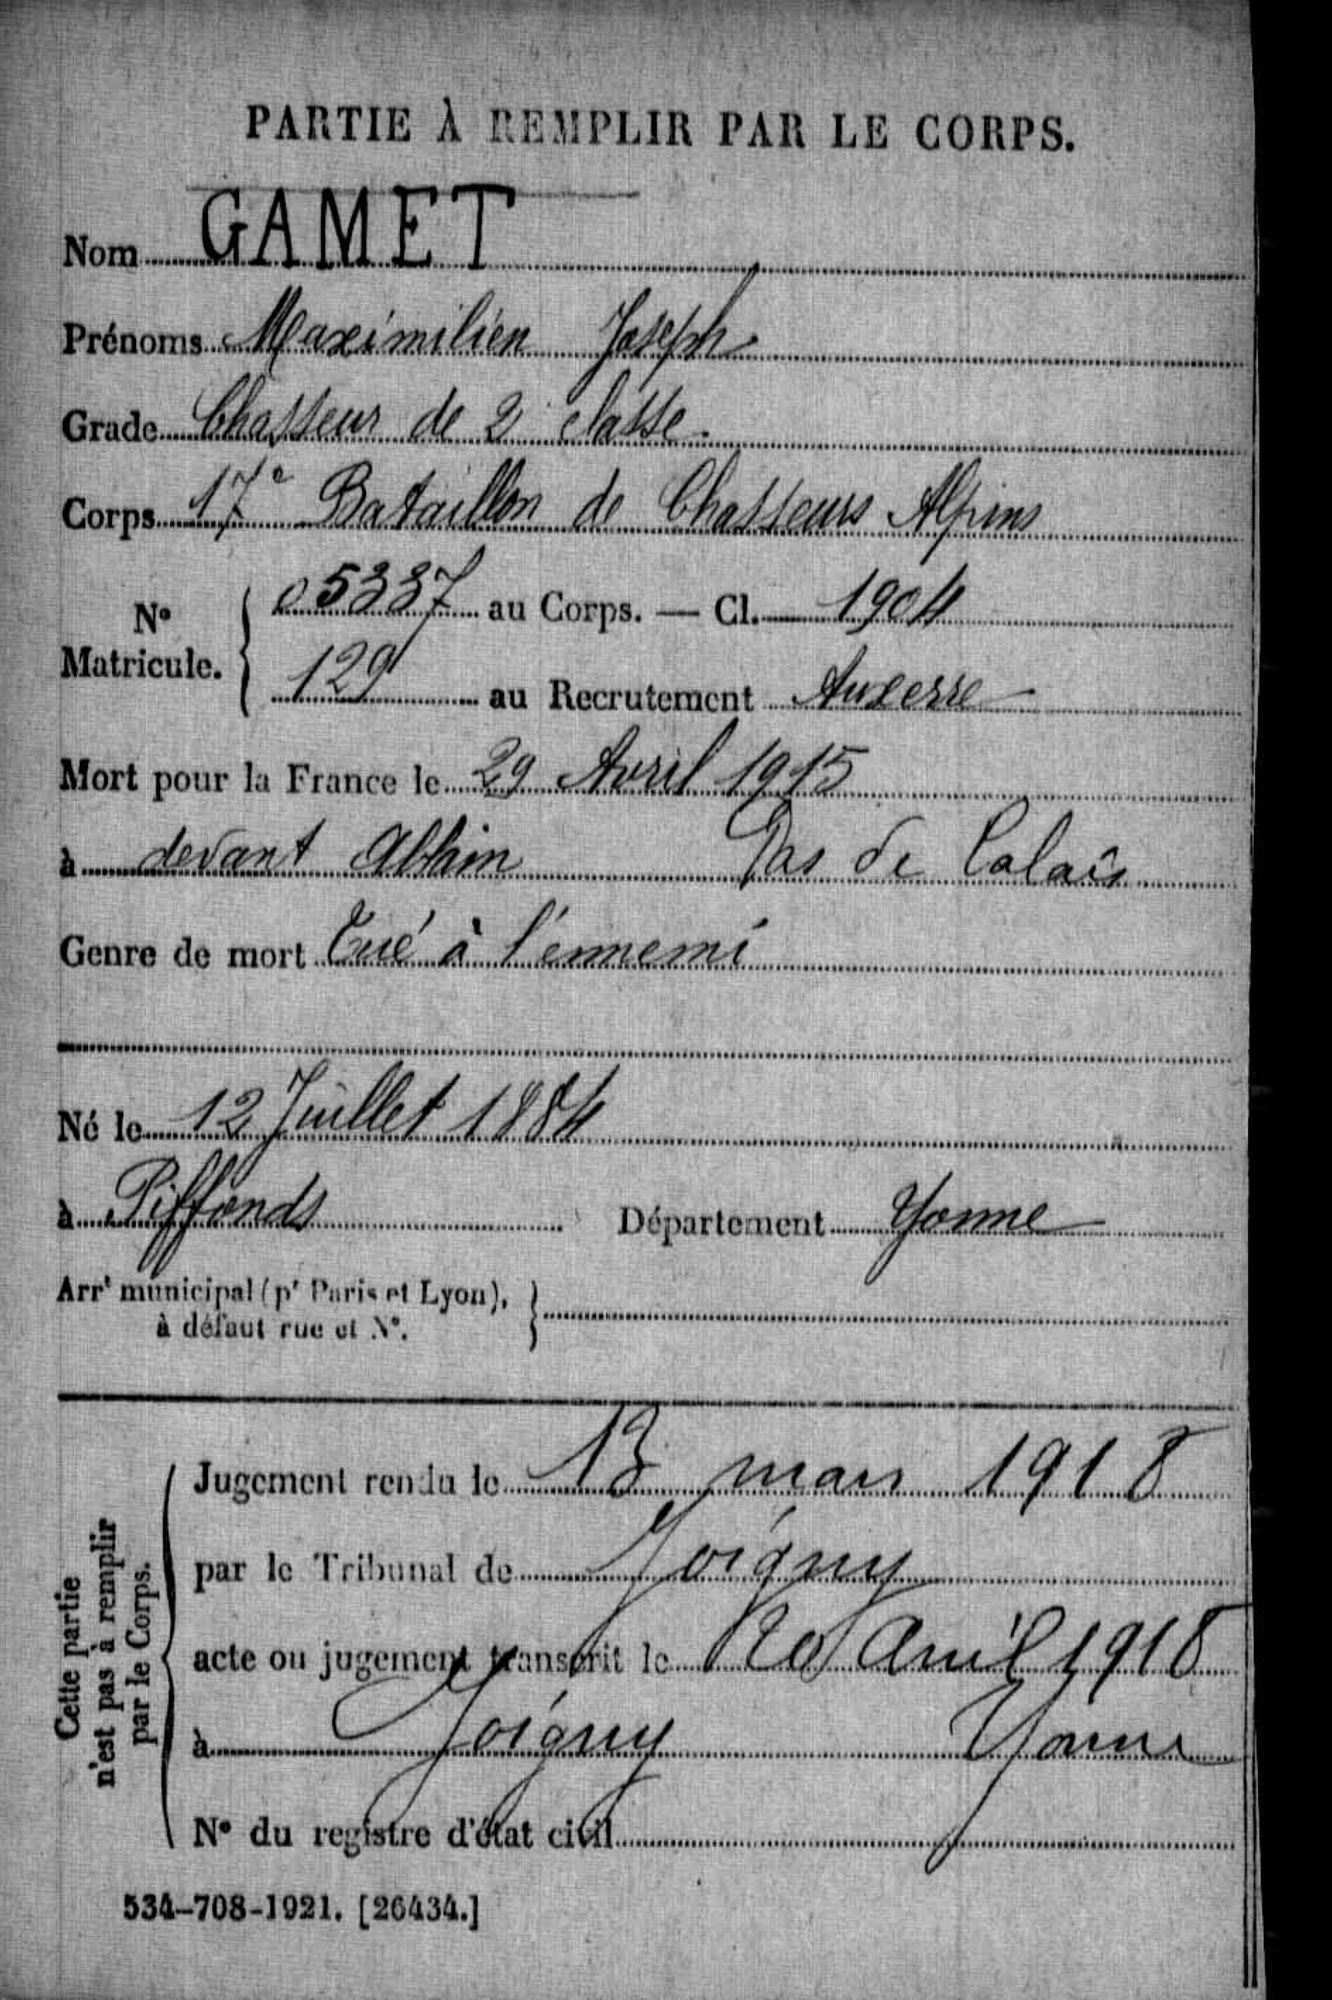 PARTIE À REMPLIR PAR LE CORPS.
Nom GAMET
Prénoms Maximilien Joseph
Grade Chasseur de 2e classe
Corps 17e Bataillon de Chasseurs Alpins
No Matricule. 05337 au Corps. — Cl. 1904
129 au Recrutement Auxerre
Mort pour la France le 29 Avril 1915
à devant Ablain Pas de Calais
Genre de mort Tué à l'ennemi
Né le 12 Juillet 1884
à Piffonds Département Yonne
Arrt municipal (pr Paris et Lyon),
à défaut rue et No.
Cette partie
n'est pas à remplir
par le Corps.
Jugement rendu le 13 mars 1918
par le Tribunal de Joigny
acte ou jugement transcrit le 20 Avril 1918
à Joigny Yonne
No du registre d'état civil
534-708-1921. [26434.]